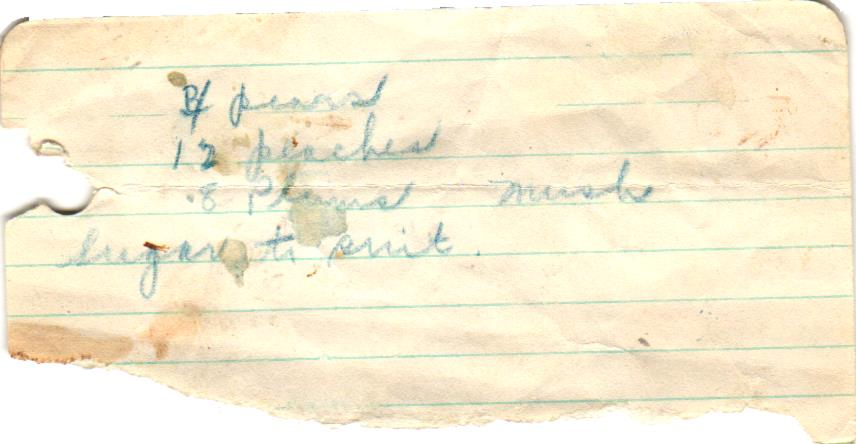 pears
12 peaches
8 Plums mush
Sugar to suit.